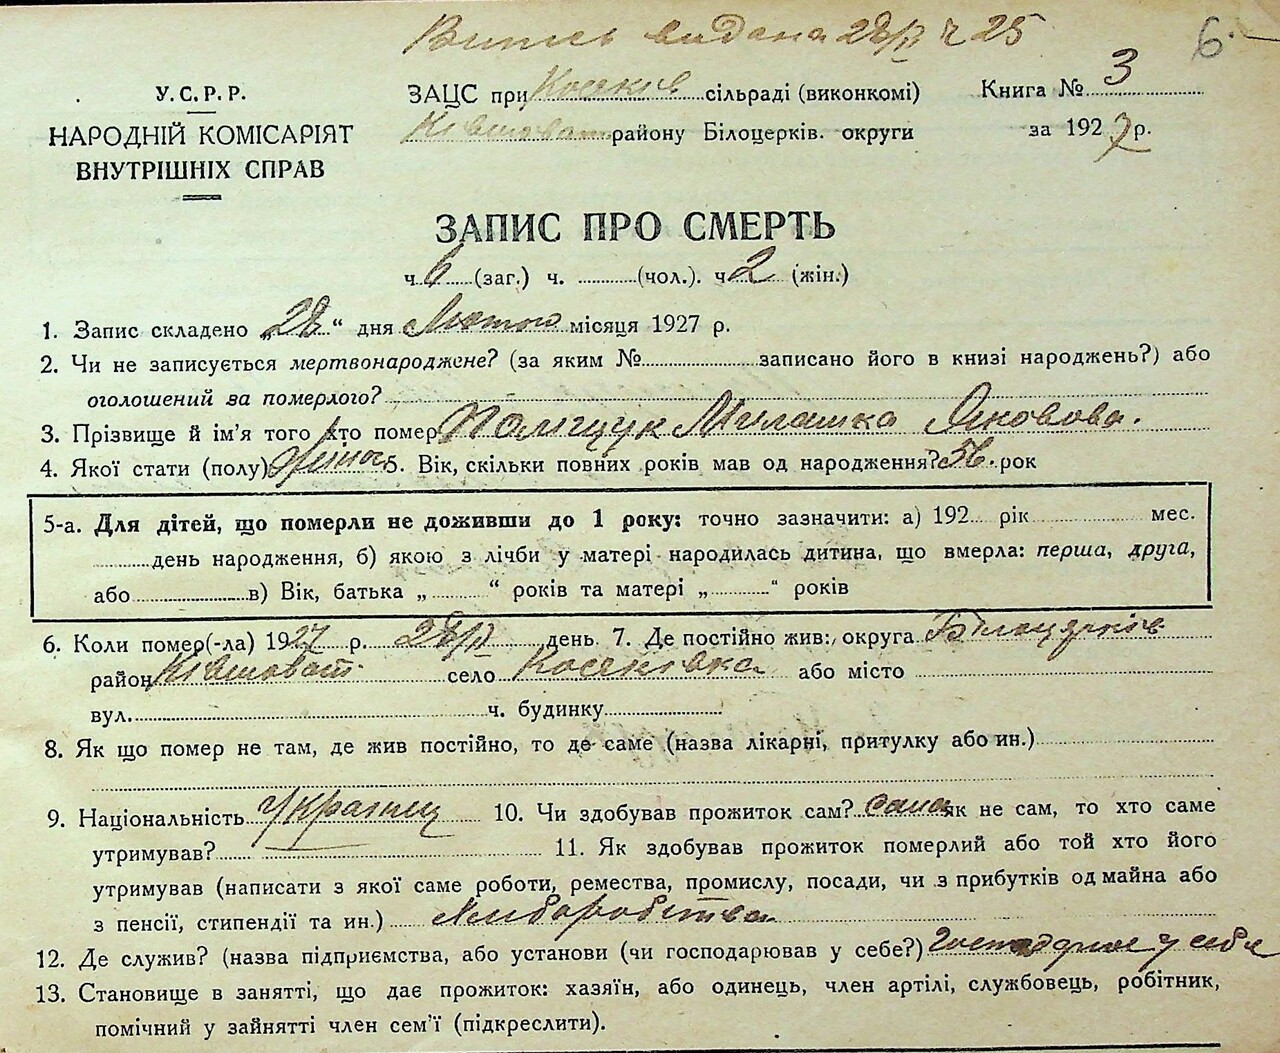 Витись видана 28/II Ч 25
6.
У.С.Р.Р.
НАРОДНІЙ КОМІСАРІЯТ
ВНУТРІШНІХ СПРАВ
ЗАЦС при Косяків сільраді (виконкомі)
Ківшоват. району Білоцерків. округи
Книга № 3
за 1927 р.
ЗАПИС ПРО СМЕРТЬ
ч. 6 (заг.) ч. (чол.). ч 2 (жін.)
1. Запис складено „28“ дня Лютого місяця 1927 р.
2. Чи не записується мертвонароджене? (за яким № записано його в книзі народжень?) або
оголошений за померлого?
3. Прізвище й ім'я того хто помер Поліщук Милашка Яковова.
4. Якої стати (полу) жіноч 5. Вік, скільки повних років мав од народження? 56. рок
5-а. Для дітей, що померли не доживши до 1 року: точно зазначити: а) 192 рік мес.
день народження, б) якою з лічби у матері народилась дитина, що вмерла: перша, друга,
або в) Вік, батька „ “ років та матері „ “ років
6. Коли помер(-ла) 1927 р. 28/II день 7. Де постійно жив: округа Білоцерків
район Ківшоват. село Косяківка або місто
вул. ч. будинку
8. Як що помер не там, де жив постійно, то де саме (назва лікарні, притулку або ин.)
9. Національність Українц 10. Чи здобував прожиток сам? сама як не сам, то хто саме
утримував? 11. Як здобував прожиток померлий або той хто його
утримував (написати з якої саме роботи, ремества, промислу, посади, чи з прибутків од майна або
з пенсії, стипендії та ин.) Хліборобства
12. Де служив? (назва підприємства, або установи (чи господарював у себе?) у себе
13. Становище в занятті, що дає прожиток: хазяїн, або одинець, член артілі, службовець, робітник,
помічний у зайнятті член сем'ї (підкреслити).